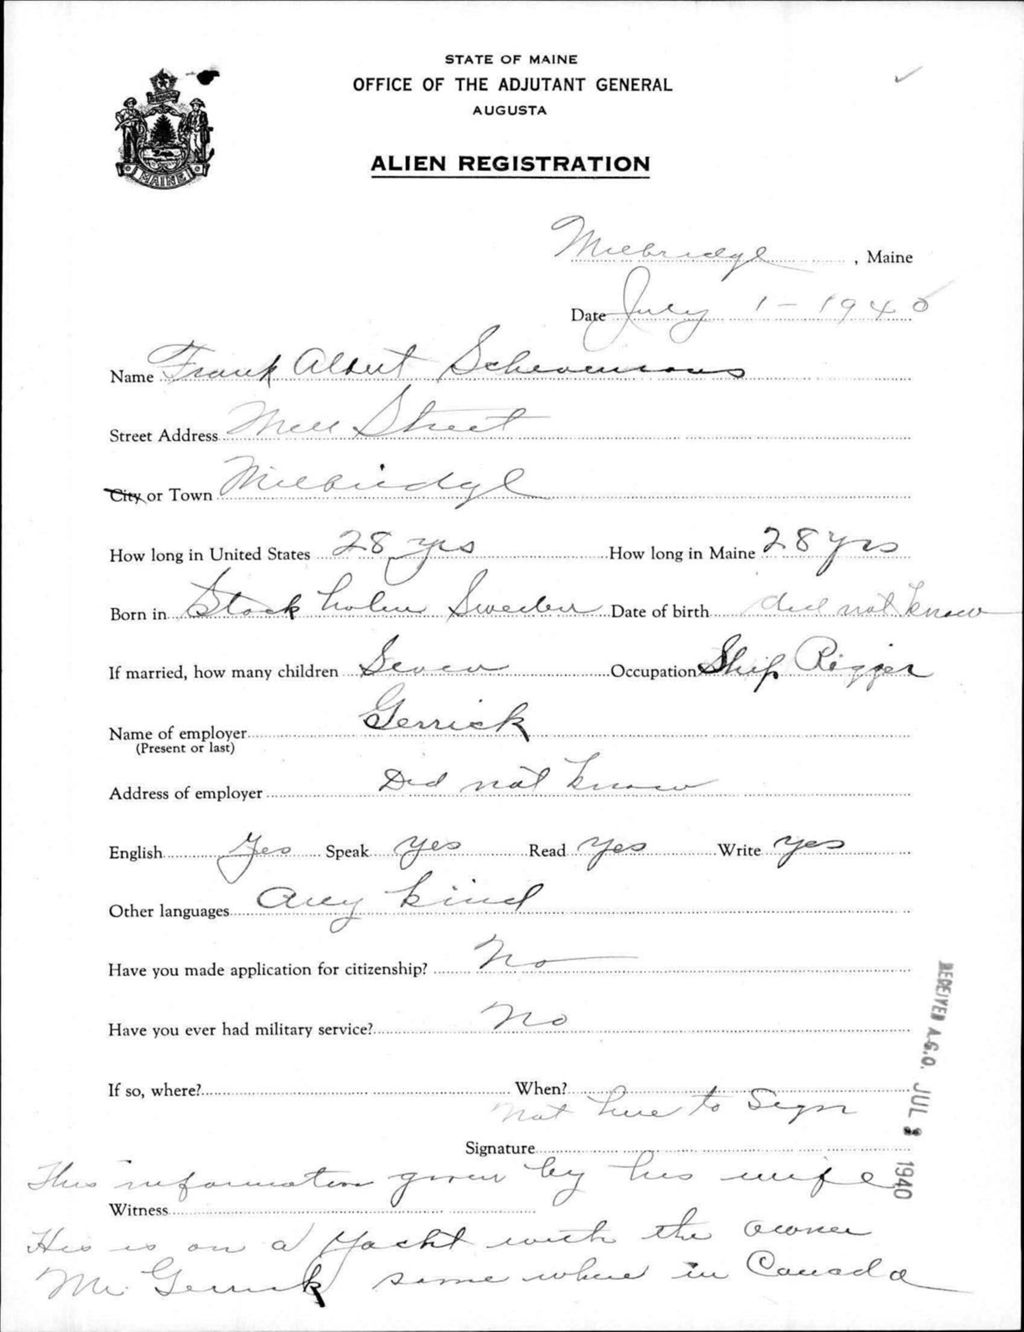 STATE OF MAINE
OFFICE OF THE ADJUTANT GENERAL
AUGUSTA
MAINE
ALIEN REGISTRATION
Milbridge, Maine
Date July 1 - 1940
Name Frank Albert
Street Address Mill Street
City or Town Milbridge
How long in United States 28 yrs How long in Maine 28 yrs
Born in Stockholm Sweden Date of birth did not know
If married, how many children Seven Occupation Ship Rigger
Name of employer Gerrick
(Present or last)
Address of employer Did not know
English Yes Speak Yes Read Yes Write Yes
Other languages Any kind
Have you made application for citizenship? No
Have you ever had military service? No
If so, where? When?
Not here to Sign
Signature
This information given by his wife
Witness
He is on a Yacht with the owner
Mr. Gerrick some where in Canada
RECEIVED A.G.O. JUL 1940